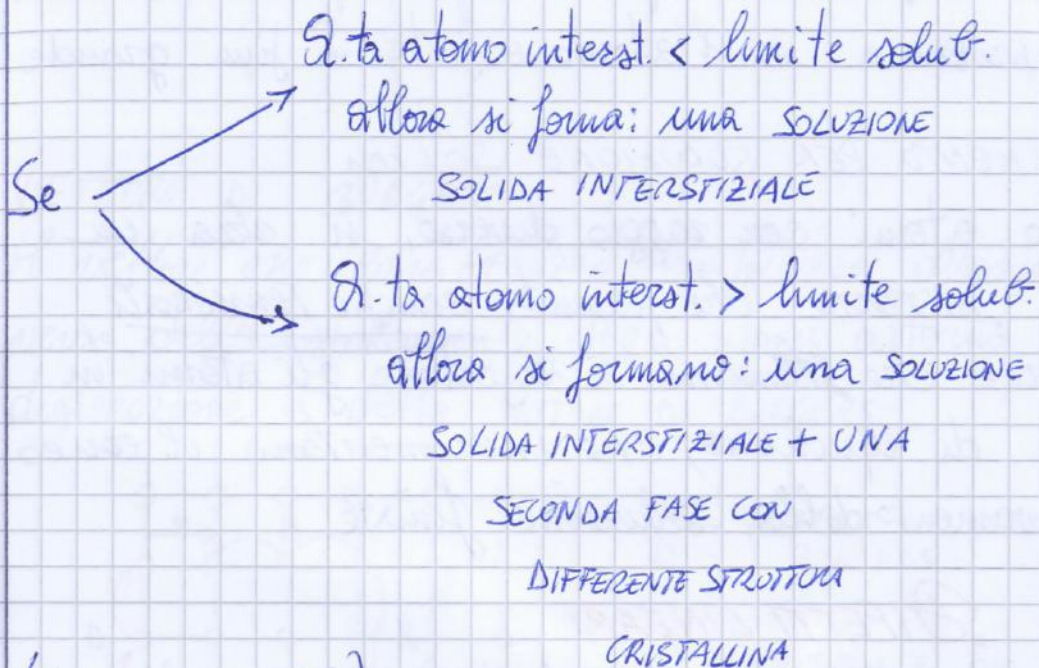 Q.ta atomo interst. < limite solub.
allora si forma: una SOLUZIONE
Se
SOLIDA INTERSTIZIALE
Q.ta atomo interst. > limite solub.
allora si formano: una SOLUZIONE
SOLIDA INTERSTIZIALE + UNA
SECONDA FASE CON
DIFFERENTE STRUTTURA
CRISTALLINA